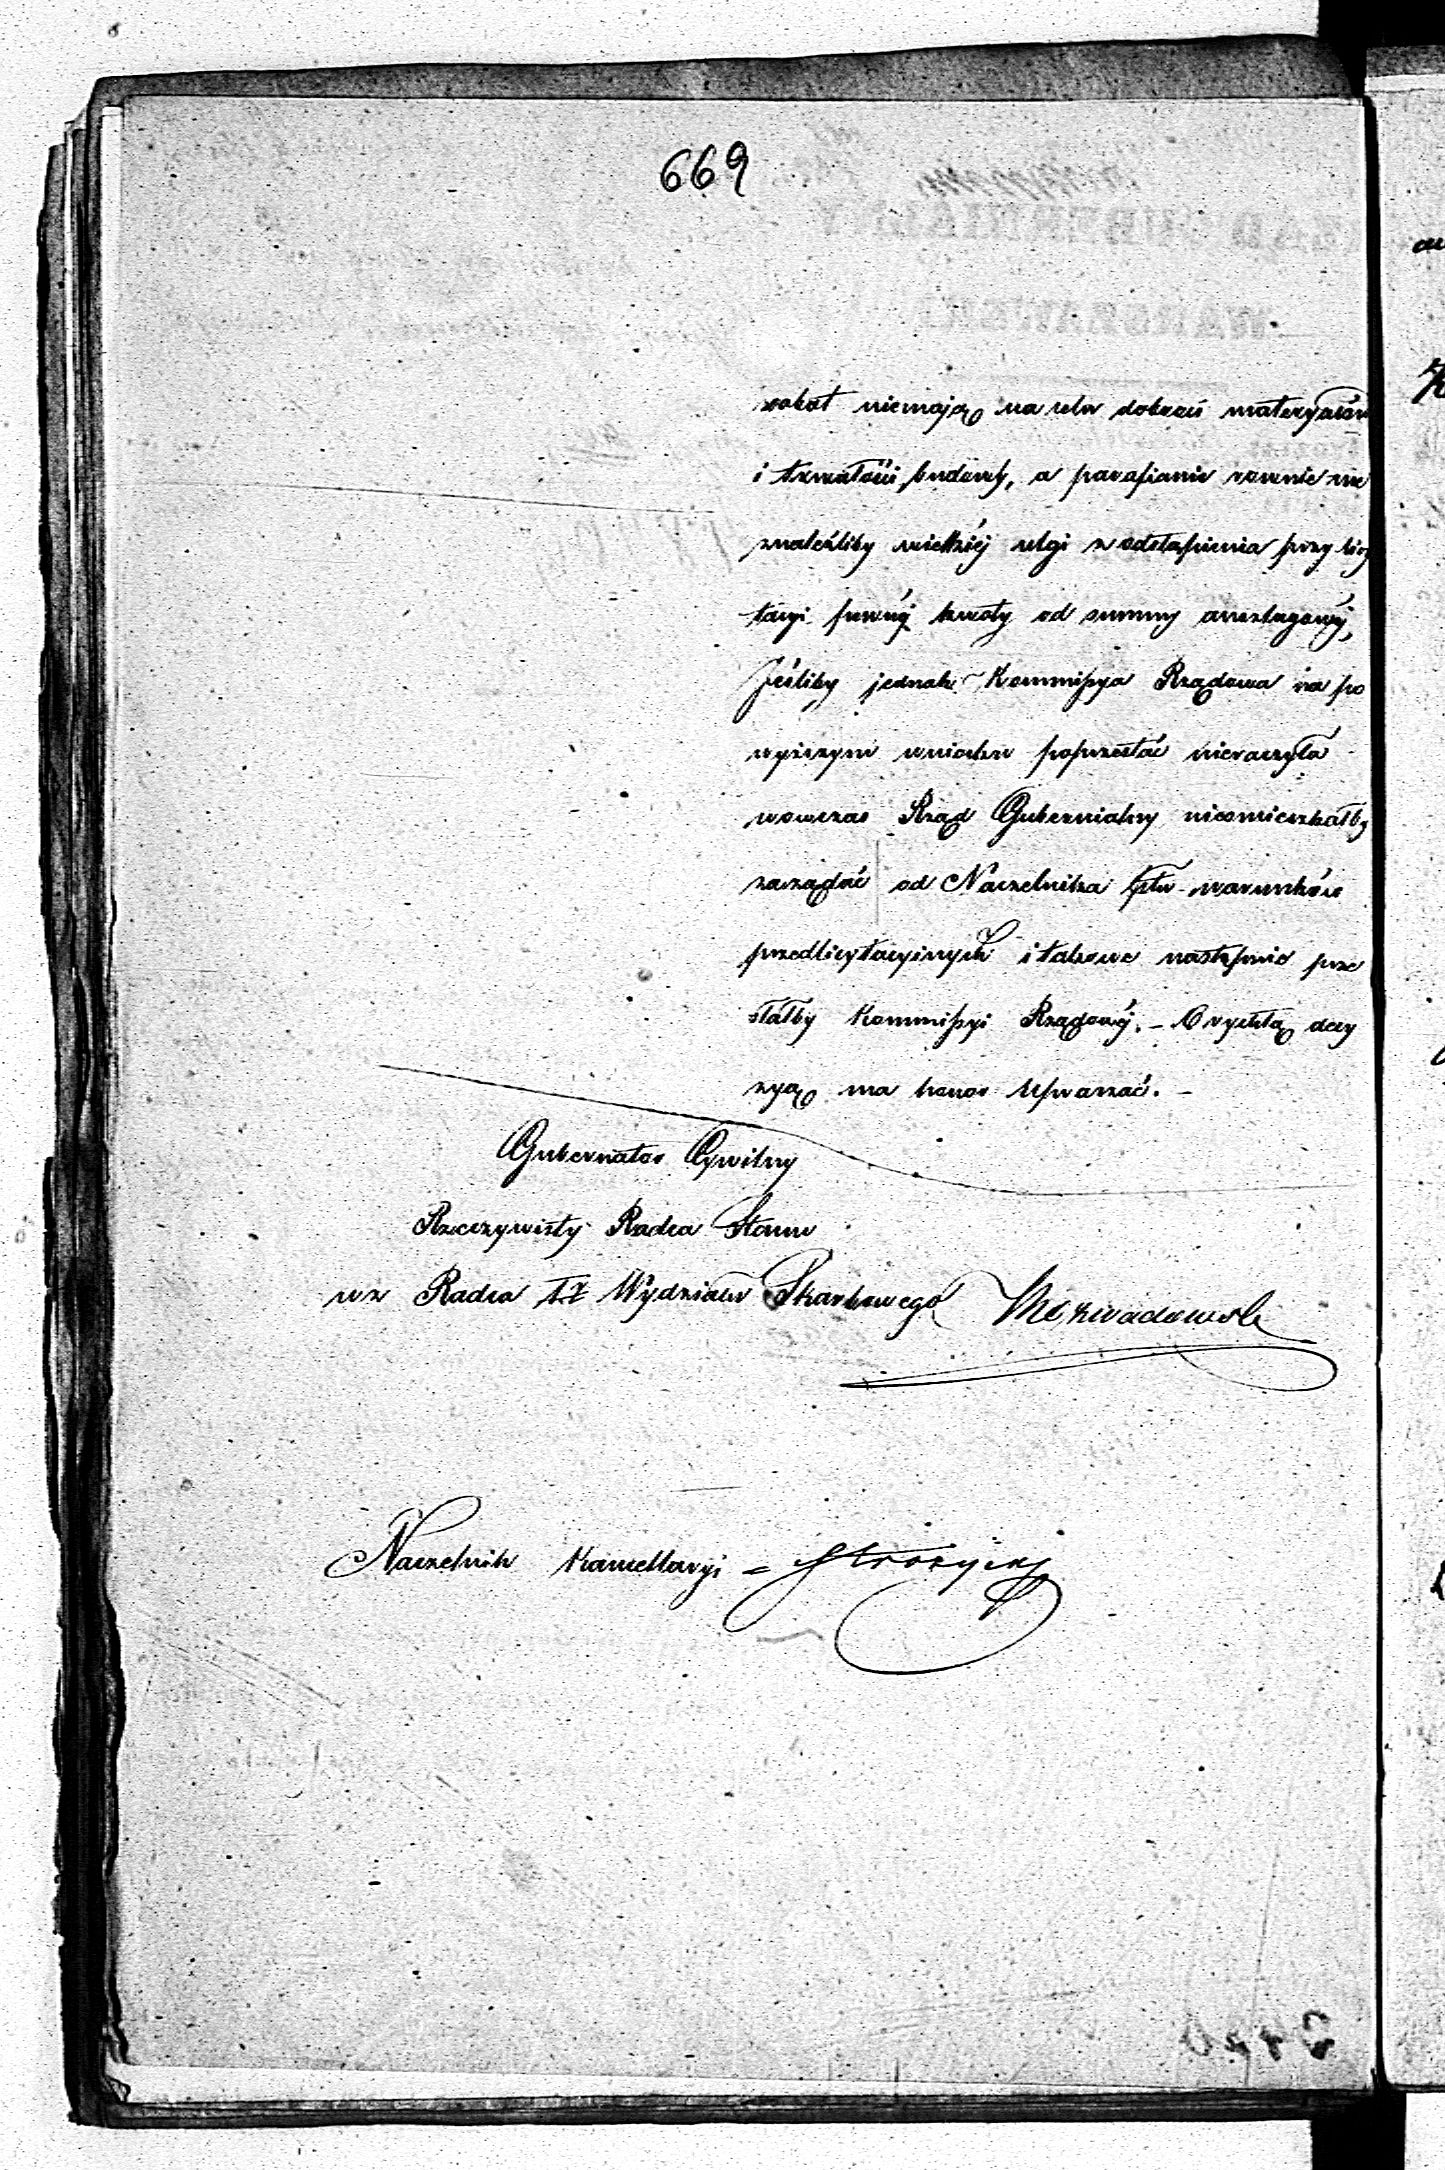 669
robót niemają na celu dobroci materyałów
i trwałości budowy, a parafianie rownie nie
znaleźliby wielkiéj ulgi z odstąpienia przy licy
tacyi pewnéj kwoty od summy anszlagowéj,
Jeśliby jednak Kommissya Rządowa na po
wyższym wniosku poprzestać nieraczyła
wowczas Rząd Gubernialny nieomieszkałby
zarządać od Naczelnika Ptu warunków
przedlicytacyinych i takowe następnie prze
słałby Kommissyi Rządowéj. – O rychłą decy
zyą ma honor upraszać. –
Gubernator Cywilny
Rzeczywisty Radca Stanu
wz Radca Wydziału Skarbowego
Naczelnik Kancellaryi